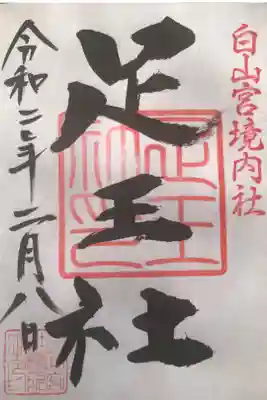 白山宮境内社
足王社
令和二年二月八日